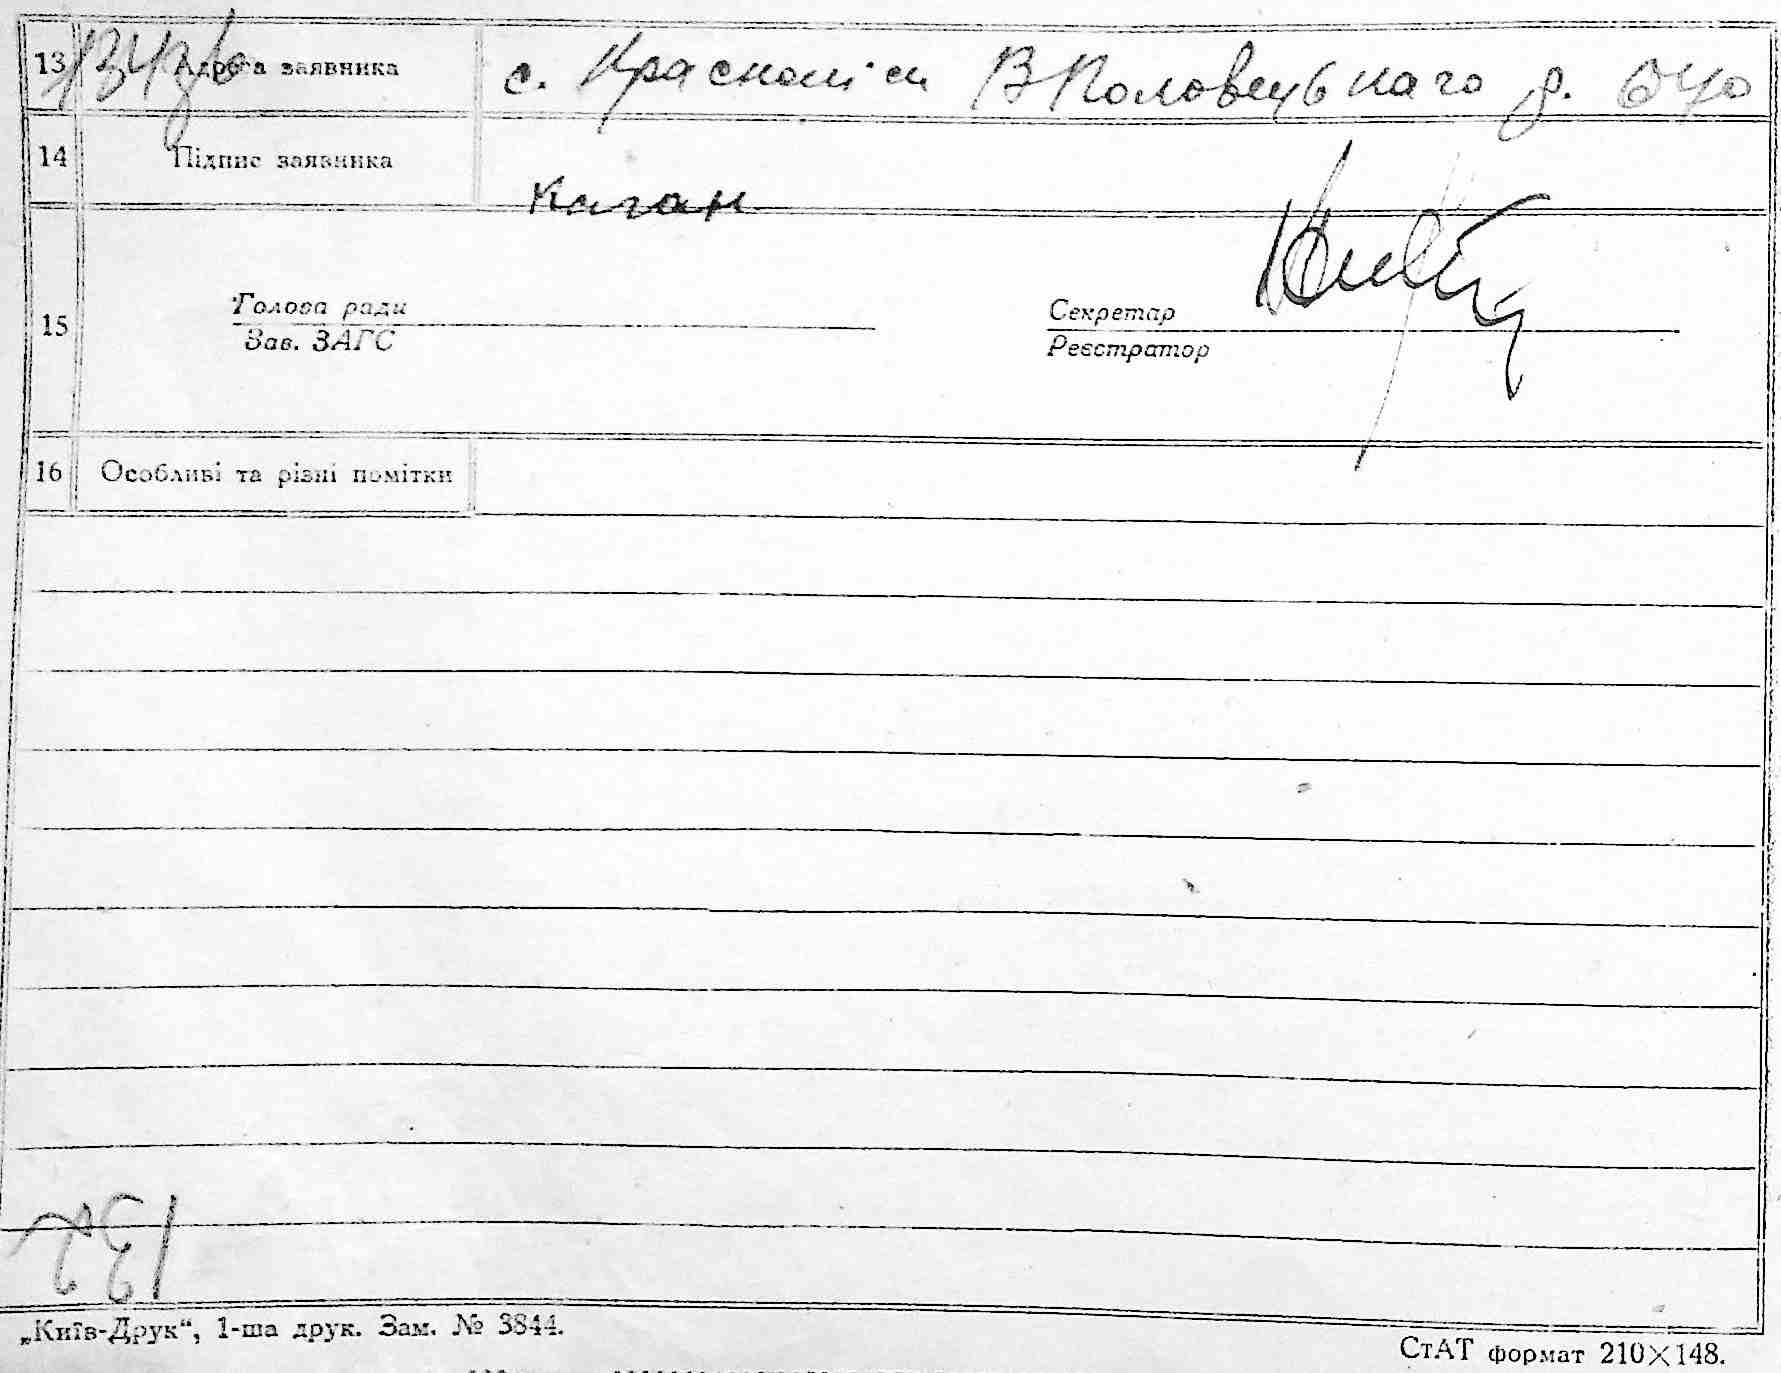 13 Адреса заявника с. Краснопіси В Половецького р.
14 Підпис заявника
Каган
15 Голова ради Секретар
Зав. ЗАГС Реєстратор
16 Особливі та різні помітки
„Київ-Друк“, 1-ша друк. Зам. № 3844.
СтАТ формат 210×148.